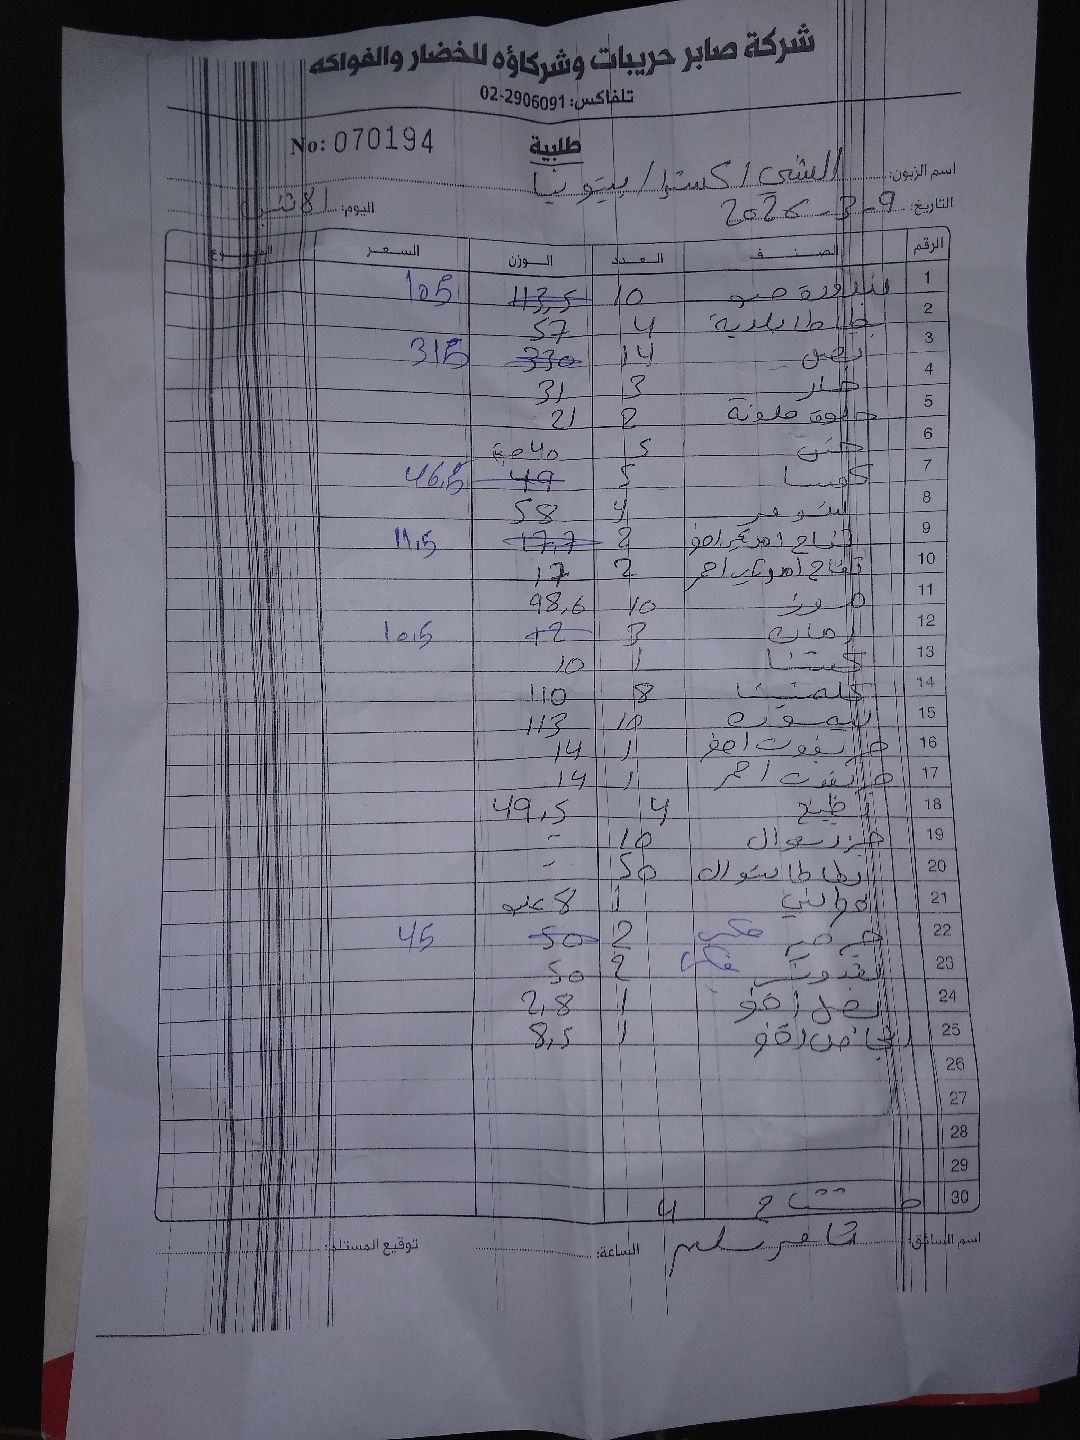 شركة صابر حريبات وشركاؤه للخضار والفواكه
تلفاكس: 02-2906091
طلبية No: 070194
اسم الزبون: الشني اكسترا / بيتونيا
التاريخ: 9-3-2026 اليوم: الاثنين
الرقم الصنف العدد الوزن السعر
1 بندورة 10 113,5 105
2 بطاطا بلدية 4 57
3 بصل 14 330 315
4 خيار 3 31
5 حلوة ملونة 2 21
6 5 40
7 كوسا 5 49 46,5
8 4 58
9 تفاح اصفر 2 17,7 11,5
10 تفاح احمر 2 17
11 موز 10 98,6
12 رمان 3 12 10,5
13 كستنا 1 10
14 كلمنتينا 8 110
15 10 113
16 جريفوت اصفر 1 14
17 جريفوت احمر 1 14
18 بطيخ 4 49,5
19 جزر شوال 10 -
20 بطاطا شوال 50 -
21 1 8
22 2 50 45
23 2 50
24 بصل اخضر 1 2,8
25 1 8,5
26
27
28
29
30 مشتاح 4
اسم السائق: تامر سليم الساعة: توقيع المستلم: